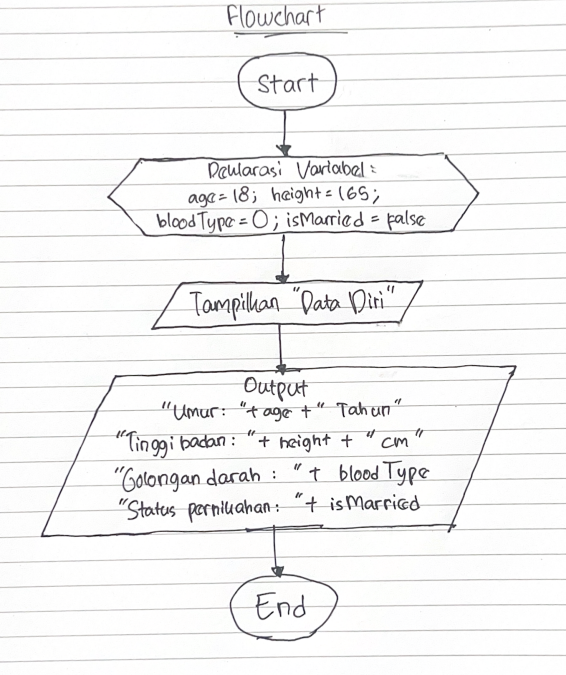 Flowchart
Start
Deklarasi Variabel:
age = 18; height = 165;
bloodType = O; isMarried = false
Tampilkan "Data Diri"
Output
"Umur: "+ age + " Tahun"
"Tinggi badan: "+ height + " cm"
"Golongan darah : " + bloodType
"Status pernikahan: "+ isMarried
End